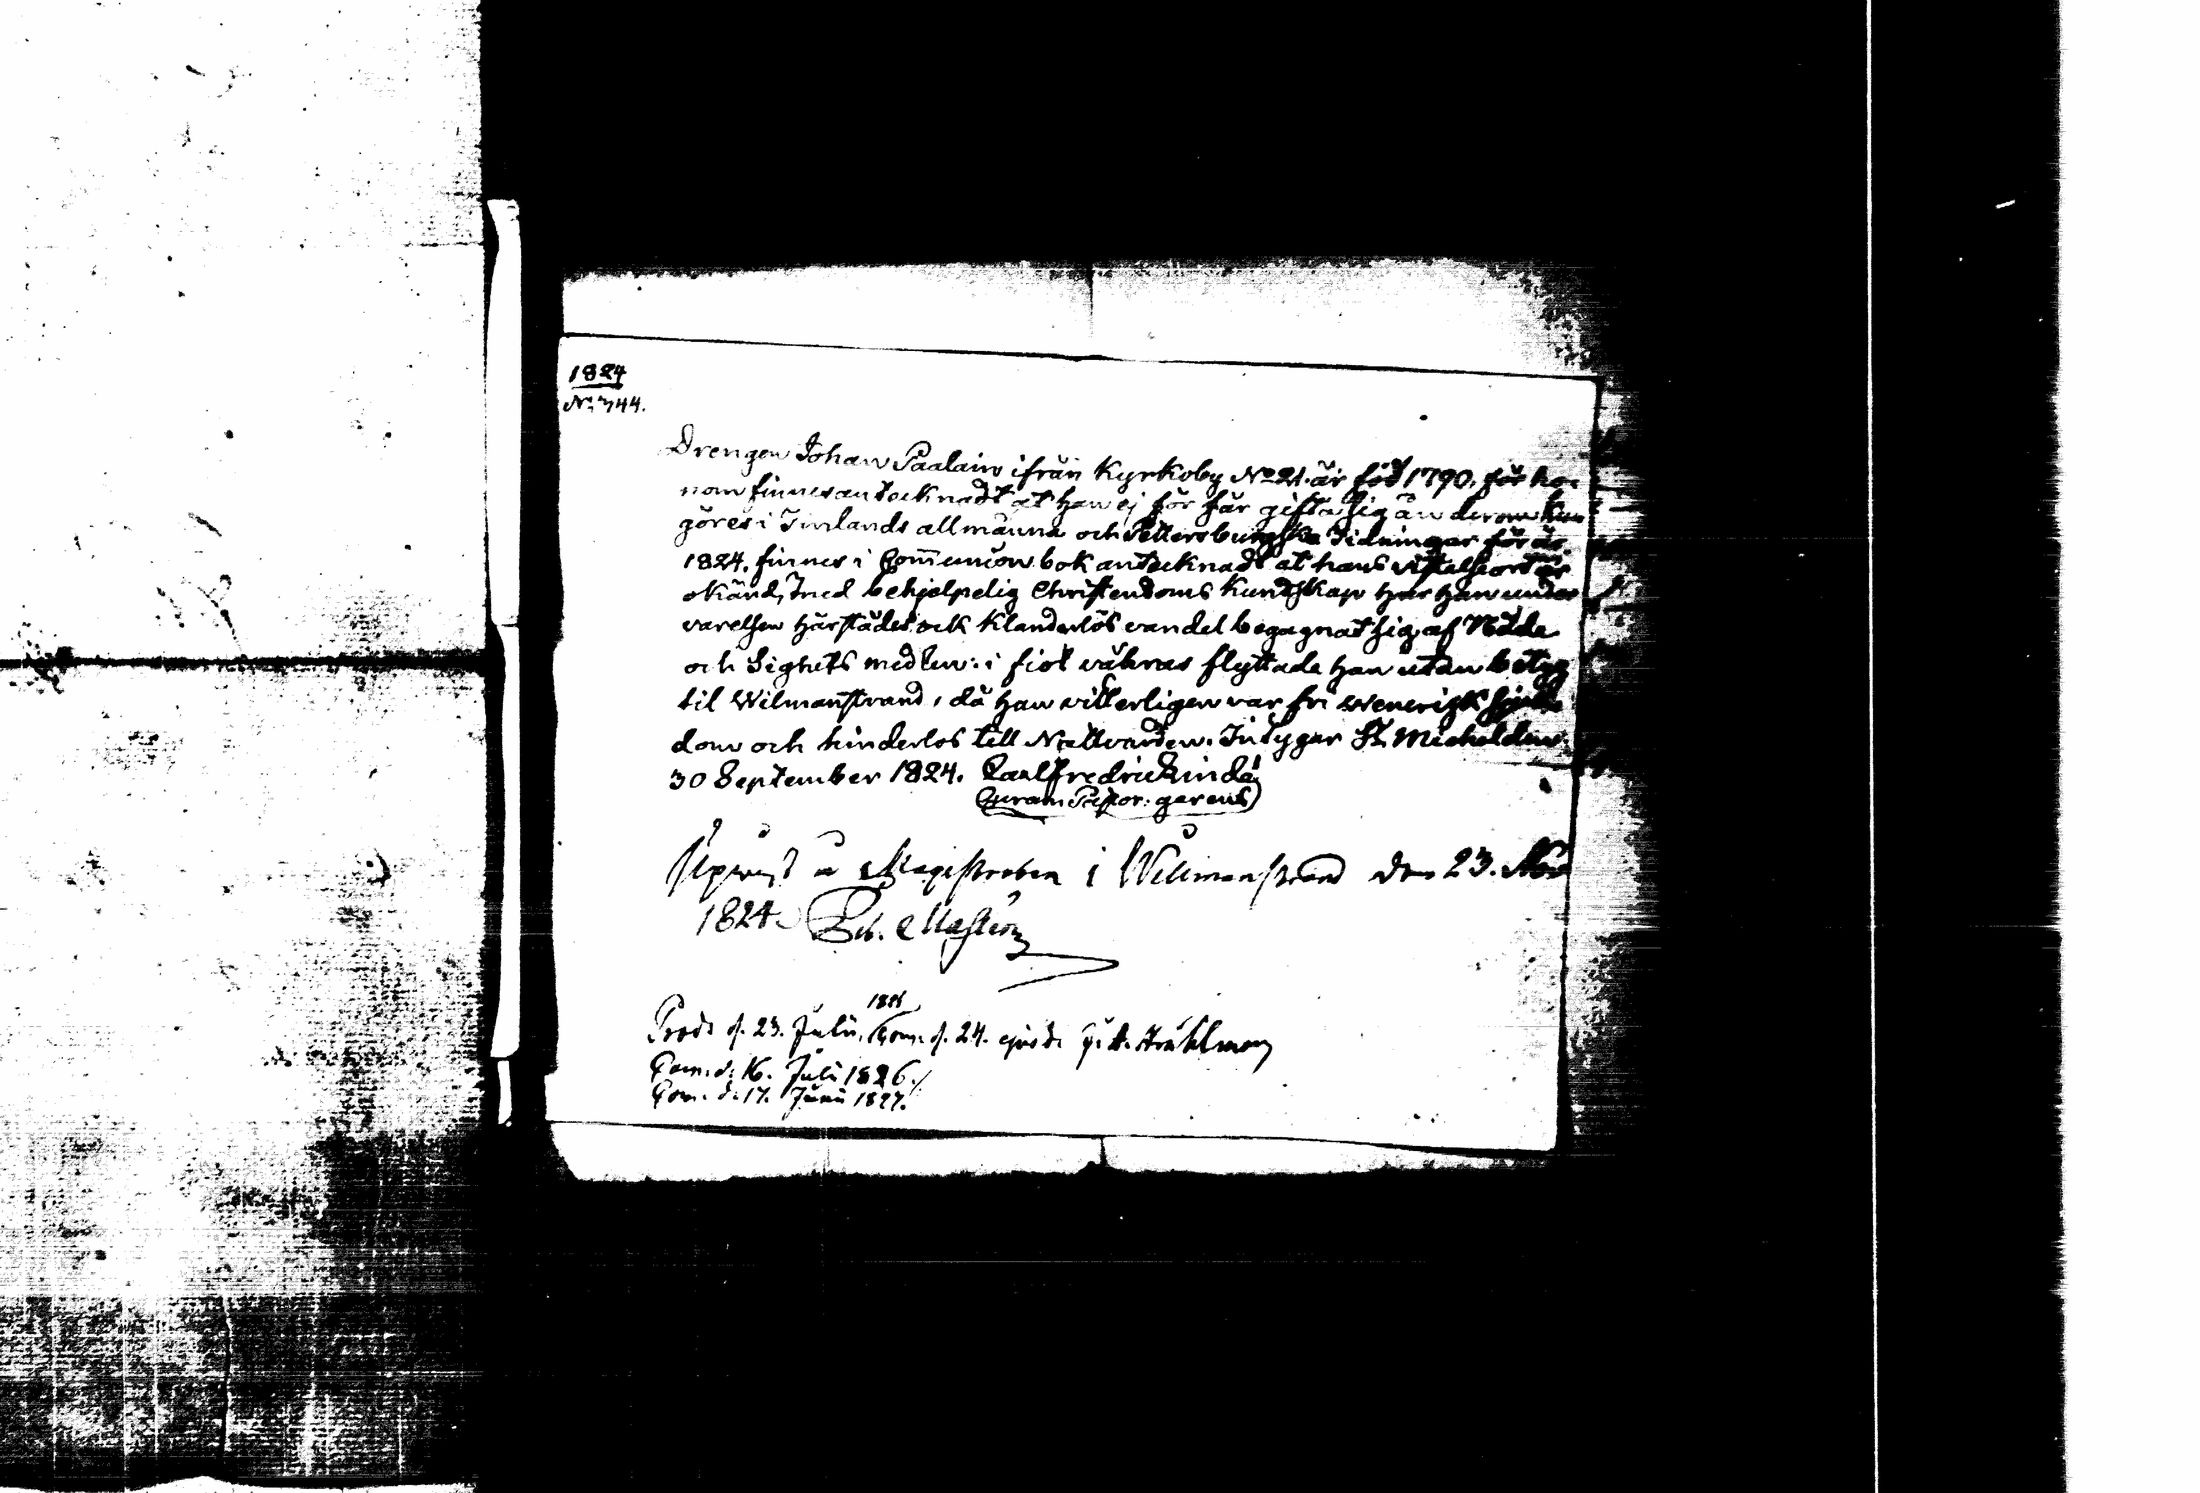 1824
No 744.
Drengen Johan Paalain ifrån Kyrkoby No 21. är föd 1790. för ho
nom finnes antecknadt at han ej för får gifta sig än derom kun
göres i Finlands allmänna och Pettersburgska Tidningar för år
1824. finnes i Communion bok antecknadt at hans vistelseort är
okänd, med behjelpelig Christendoms Kundskap har han under
varelsen härstädes och Klanderlös vandel begagnat sig af Nåde
och Salighets medlen: i fiol våhras flyttade han utan betyg
til Wilmanstrand, då han vitterligen var fri Wenerisk sjuk
dom och hinderlös till Nattvarden. Intygar St. Michel den
30 September 1824. Carl Fredric
Curam Pastor: gerens
Upvist å Magistraten i Willmanstrand den 23. Nov
1824.
1825
Prod. d. 23. Julii, Com. d. 24. ejusd. Strählman
Com. d. 16. Juli 1826.
Com. d. 17. Junii 1827.